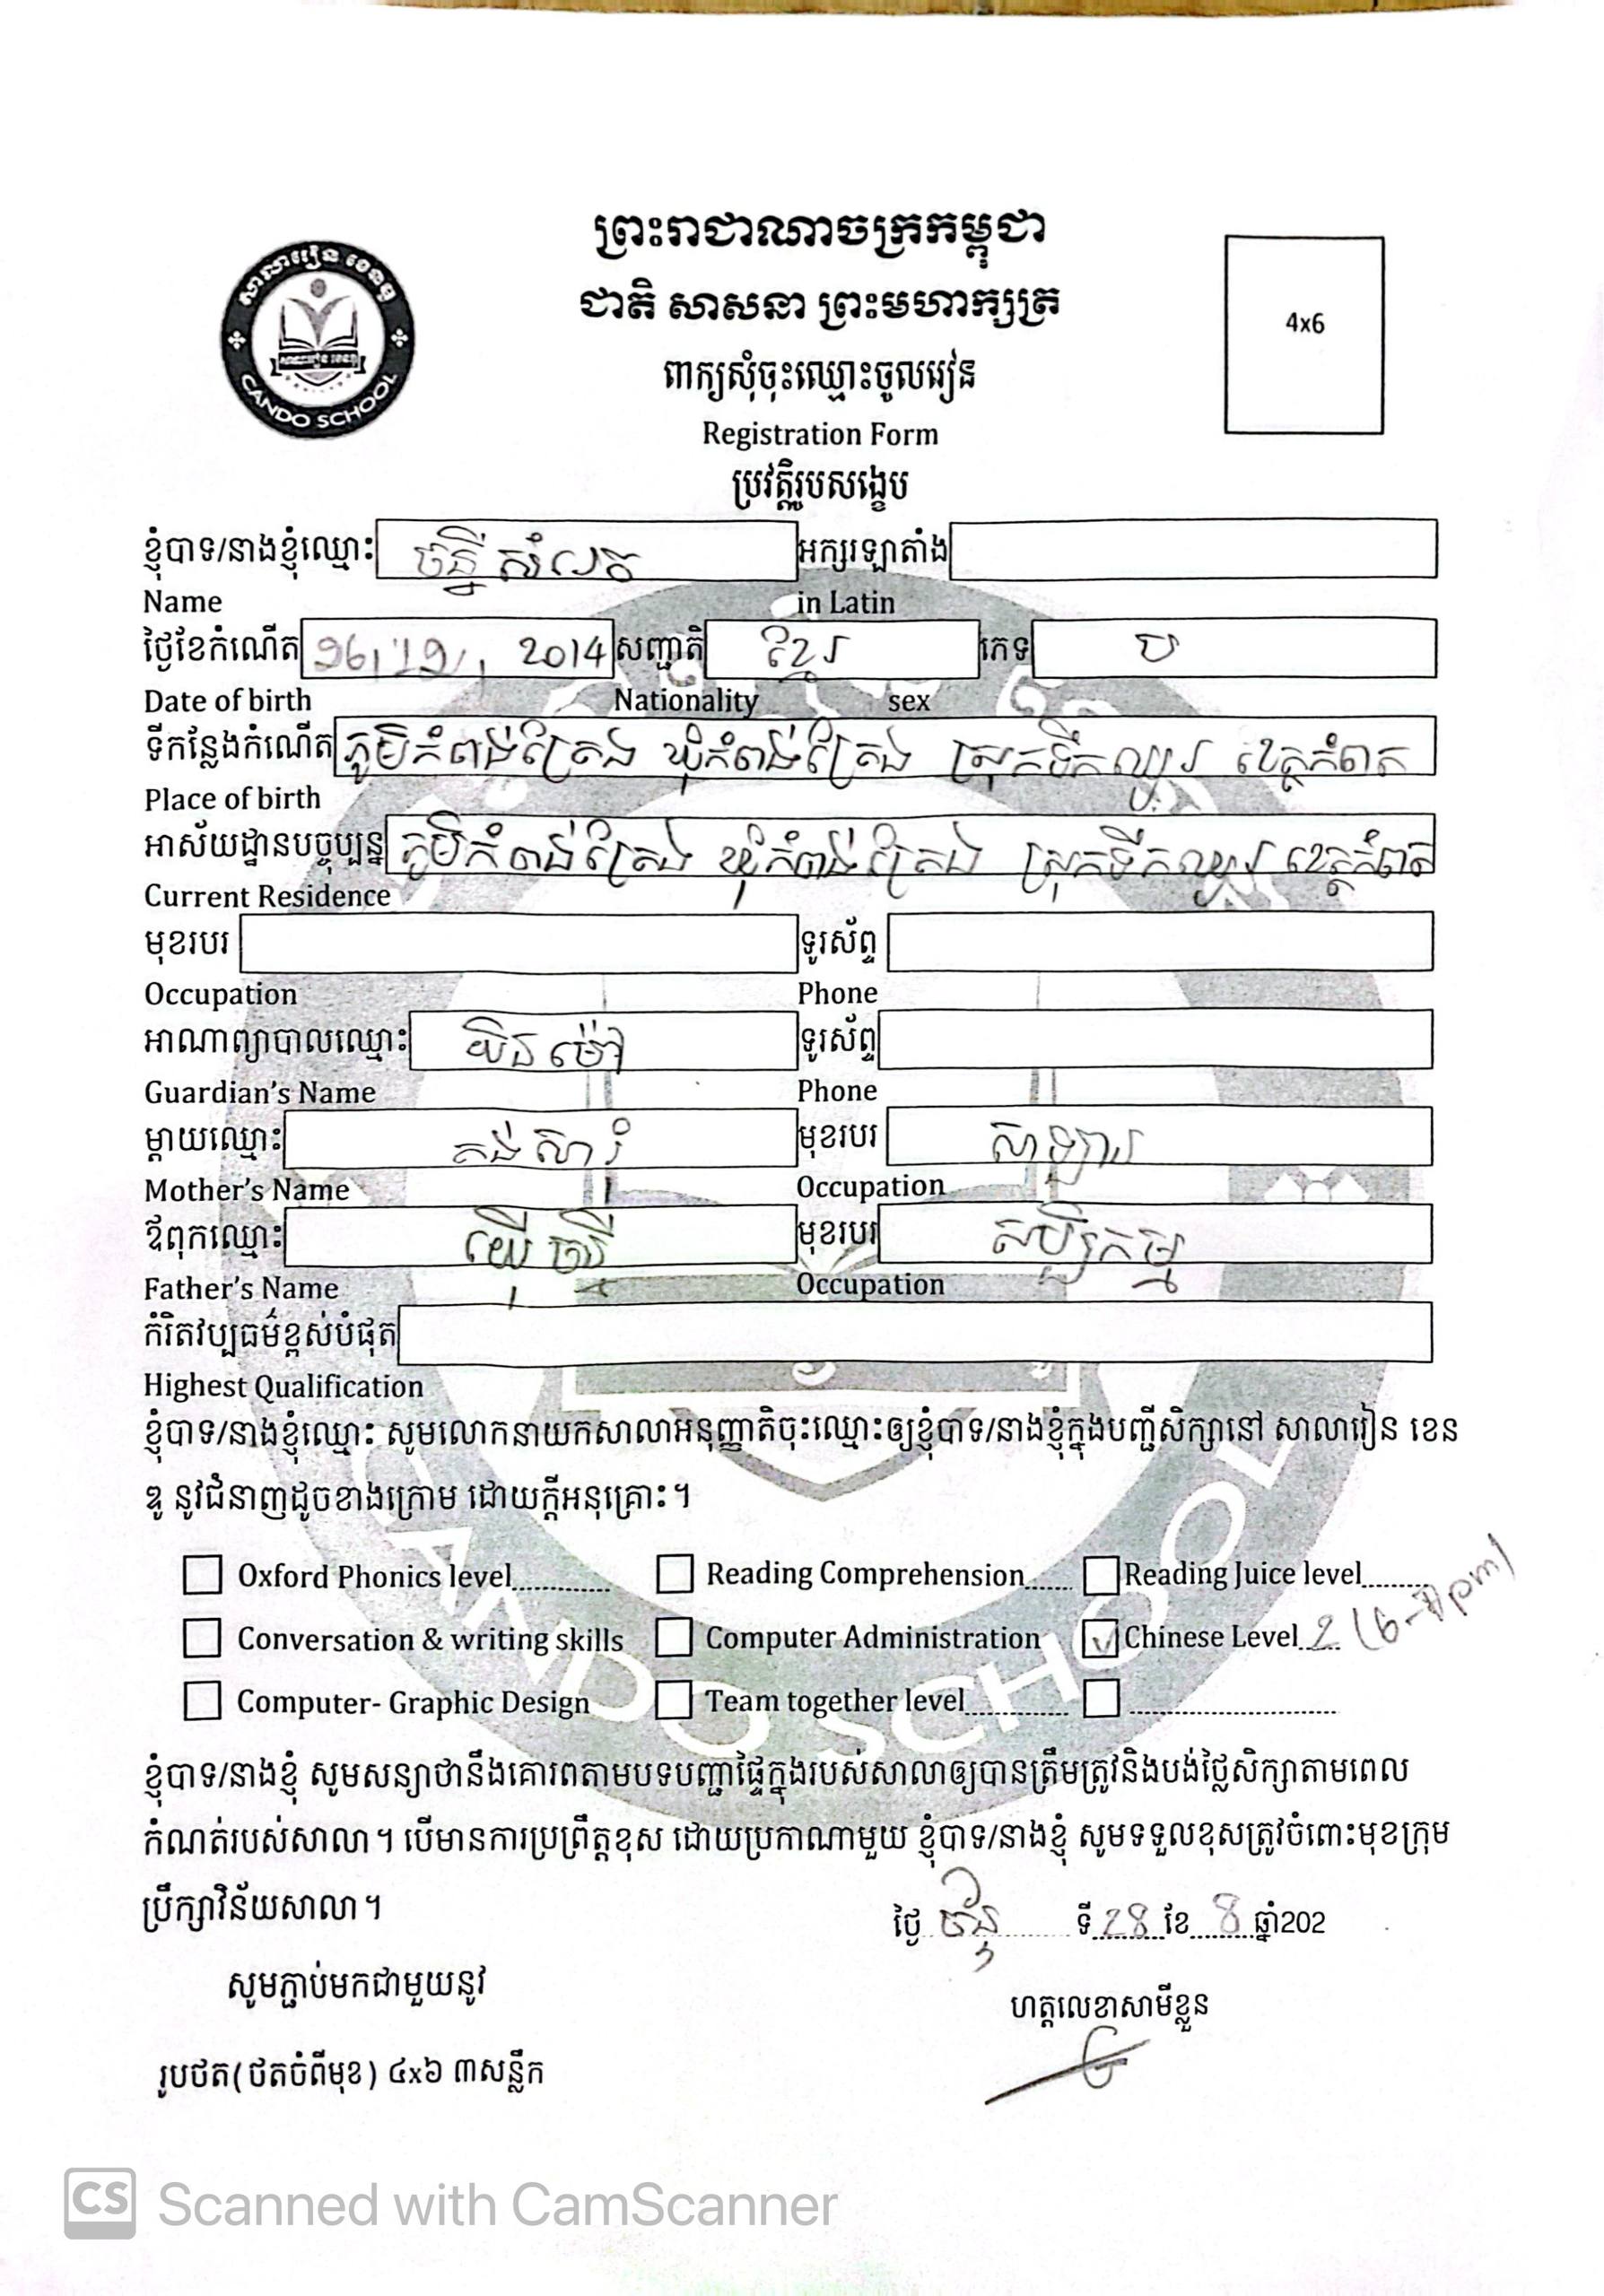 ព្រះរាជាណាចក្រកម្ពុជា
ជាតិ សាសនា ព្រះមហាក្សត្រ
សាលារៀន ខេនឌូ
CANDO SCHOOL
4x6
ពាក្យសុំចុះឈ្មោះចូលរៀន
Registration Form
ប្រវត្តិរូបសង្ខេប
ខ្ញុំបាទ/នាងខ្ញុំឈ្មោះ អក្សរឡាតាំង
Name in Latin
ថ្ងៃខែកំណើត 26/12/ 2014 សញ្ជាតិ ខ្មែរ ភេទ ប
Date of birth Nationality sex
ទីកន្លែងកំណើត ភូមិកំពង់ត្រែង ឃុំកំពង់ត្រែង ស្រុកទឹកឈូរ ខេត្តកំពត
Place of birth
អាស័យដ្ឋានបច្ចុប្បន្ន ភូមិកំពង់ត្រែង ឃុំកំពង់ត្រែង ស្រុកទឹកឈូរ ខេត្តកំពត
Current Residence
មុខរបរ ទូរស័ព្ទ
Occupation Phone
អាណាព្យាបាលឈ្មោះ យិន ម៉ៅ ទូរស័ព្ទ
Guardian's Name Phone
ម្តាយឈ្មោះ គង់ សារំ មុខរបរ
Mother's Name Occupation
ឪពុកឈ្មោះ មុខរបរ កសិកម្ម
Father's Name Occupation
កំរិតវប្បធម៌ខ្ពស់បំផុត
Highest Qualification
ខ្ញុំបាទ/នាងខ្ញុំឈ្មោះ សូមលោកនាយកសាលាអនុញ្ញាតិចុះឈ្មោះឲ្យខ្ញុំបាទ/នាងខ្ញុំក្នុងបញ្ជីសិក្សានៅ សាលារៀន ខេន
ឌូ នូវជំនាញដូចខាងក្រោម ដោយក្តីអនុគ្រោះ។
Oxford Phonics level............ Reading Comprehension...... Reading Juice level.........
Conversation & writing skills Computer Administration ✓ Chinese Level 2 (6-7pm)
Computer- Graphic Design Team together level.............. ............................
ខ្ញុំបាទ/នាងខ្ញុំ សូមសន្យាថានឹងគោរពតាមបទបញ្ជាផ្ទៃក្នុងរបស់សាលាឲ្យបានត្រឹមត្រូវនិងបង់ថ្លៃសិក្សាតាមពេល
កំណត់របស់សាលា។ បើមានការប្រព្រឹត្តខុស ដោយប្រកាណាមួយ ខ្ញុំបាទ/នាងខ្ញុំ សូមទទួលខុសត្រូវចំពោះមុខក្រុម
ប្រឹក្សាវិន័យសាលា។
ថ្ងៃ ច័ន្ទ ទី 28 ខែ 8 ឆ្នាំ202
សូមភ្ជាប់មកជាមួយនូវ
ហត្ថលេខាសាមីខ្លួន
រូបថត(ថតចំពីមុខ) ៤x៦ ៣សន្លឹក
CS Scanned with CamScanner